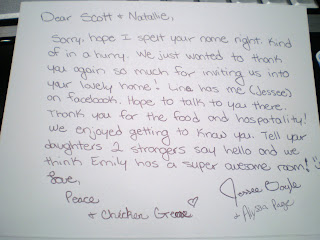 Dear Scott & Natallie,
Sorry, hope I spelt your name right. Kind
of in a hurry. We just wanted to thank
you again so much for inviting us into
your lovely home! Line has me (Jessee)
on facebook. Hope to talk to you there.
Thank you for the food and hospotality!
We enjoyed getting to know you. Tell your
daughters 2 strangers say hello and we
think Emily has a super awesome room!
Love,
Peace
& Chicken Grease
Jessee
& Alysia Page